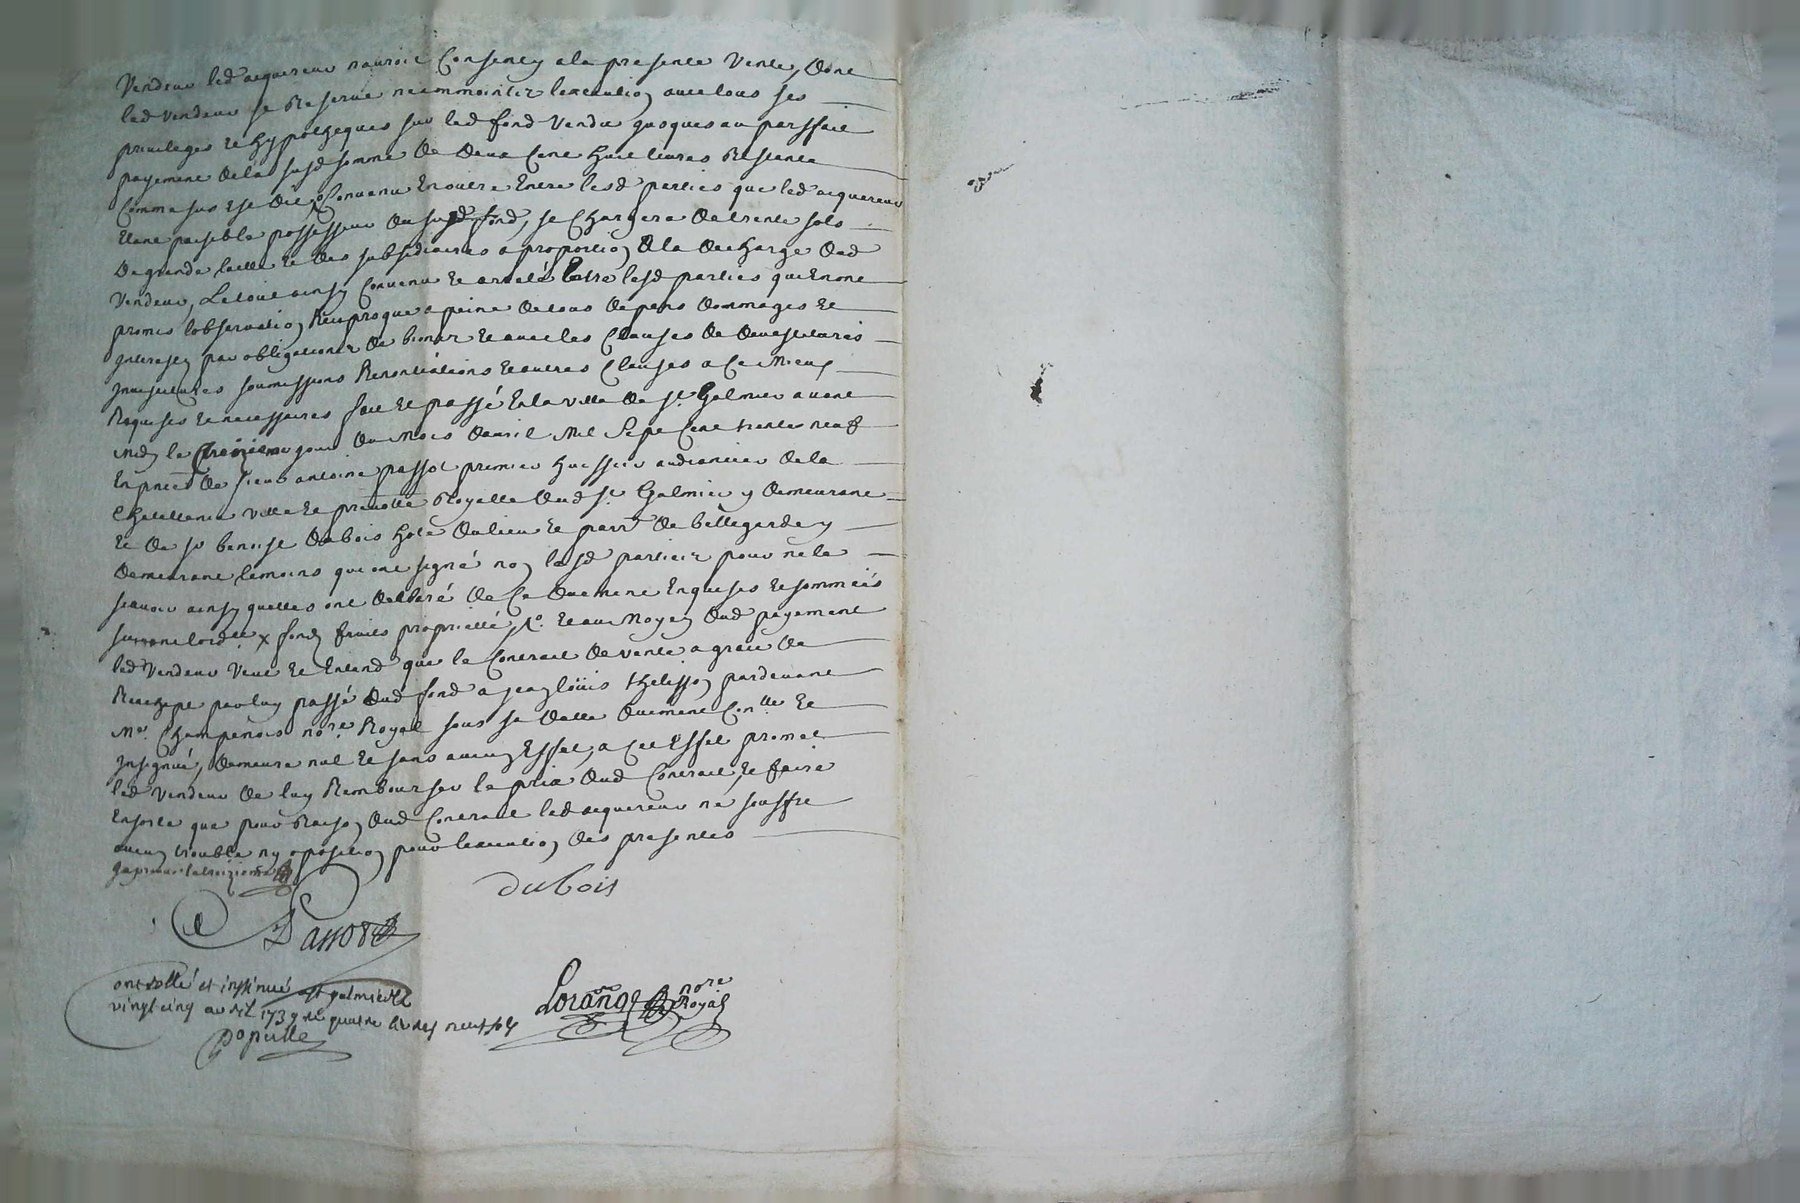 Vendeur led acquereur nauroit Consenty a la presente Vente, dont
led Vendeur se Reserve neammointz lexecution avec tous ses
privileges et hypotheques sur led fond Vendu jusques au parffait
payement de la susd somme de deux Cent huit livres Restante
Comme sus est dit, Convenu Encorre Entre lesd parties que led acquereur
Etant paisible possesseur du susd fond, se Chargera de trente sols
De grande taille et des subsidiaires a proportion a la decharge dud
Vendeur, Le tout ainsy Convenu et areté Entre lesd parties qui En ont
promis lobservation Reciproque a peine de tous depens dommages et
Interestz par obligation de biens et avec les Clauses de devestitures
Investitures soumissions Renontiations et autres Clauses a Ce Mieux
Requises et necessaires fait et passé En la ville de st Galmier avant
midy le treizieme jour du Mois davril Mil Sept Cent trente neuf
En pnce de sieur antoine passot premier huissier audiancier de la
Chatellenie ville et prevoté Royalle dud st Galmier y demeurant
Et de sr benoist dubois hote du lieu et parr. de bellegarde y
Demeurant temoins qui ont signé non lesd parties pour ne le
scavoir ainsy quelles ont declaré de Ce duement Enquises et sommées
suivant lord.ce x fond fruits proprietté, Et au Moyen dud payement
led Vendeur Veut et Entend que le Contract de vente a grace de
Reachept par luy passé dud fond a jean loüis thelisson pardevant
Me. Champenois nore. Royal sous sa datte duement Conllé et
Insignué, demeure nul et sans aucun Effet, a Cet Effet promet
led Vendeur de luy Rembourser le prix dud Contract, et faire
Ensorte que pour Raison dud Contract led acquereur ne souffre
aucun trouble ny oposition pour lexecution des presentes
japrouve le treizieme
dubois
Passot
Lorange nore Royal
Controllé et insinué a st galmier le
vingt cinq avril 1739 Re quatre livres neuf sols
Populle